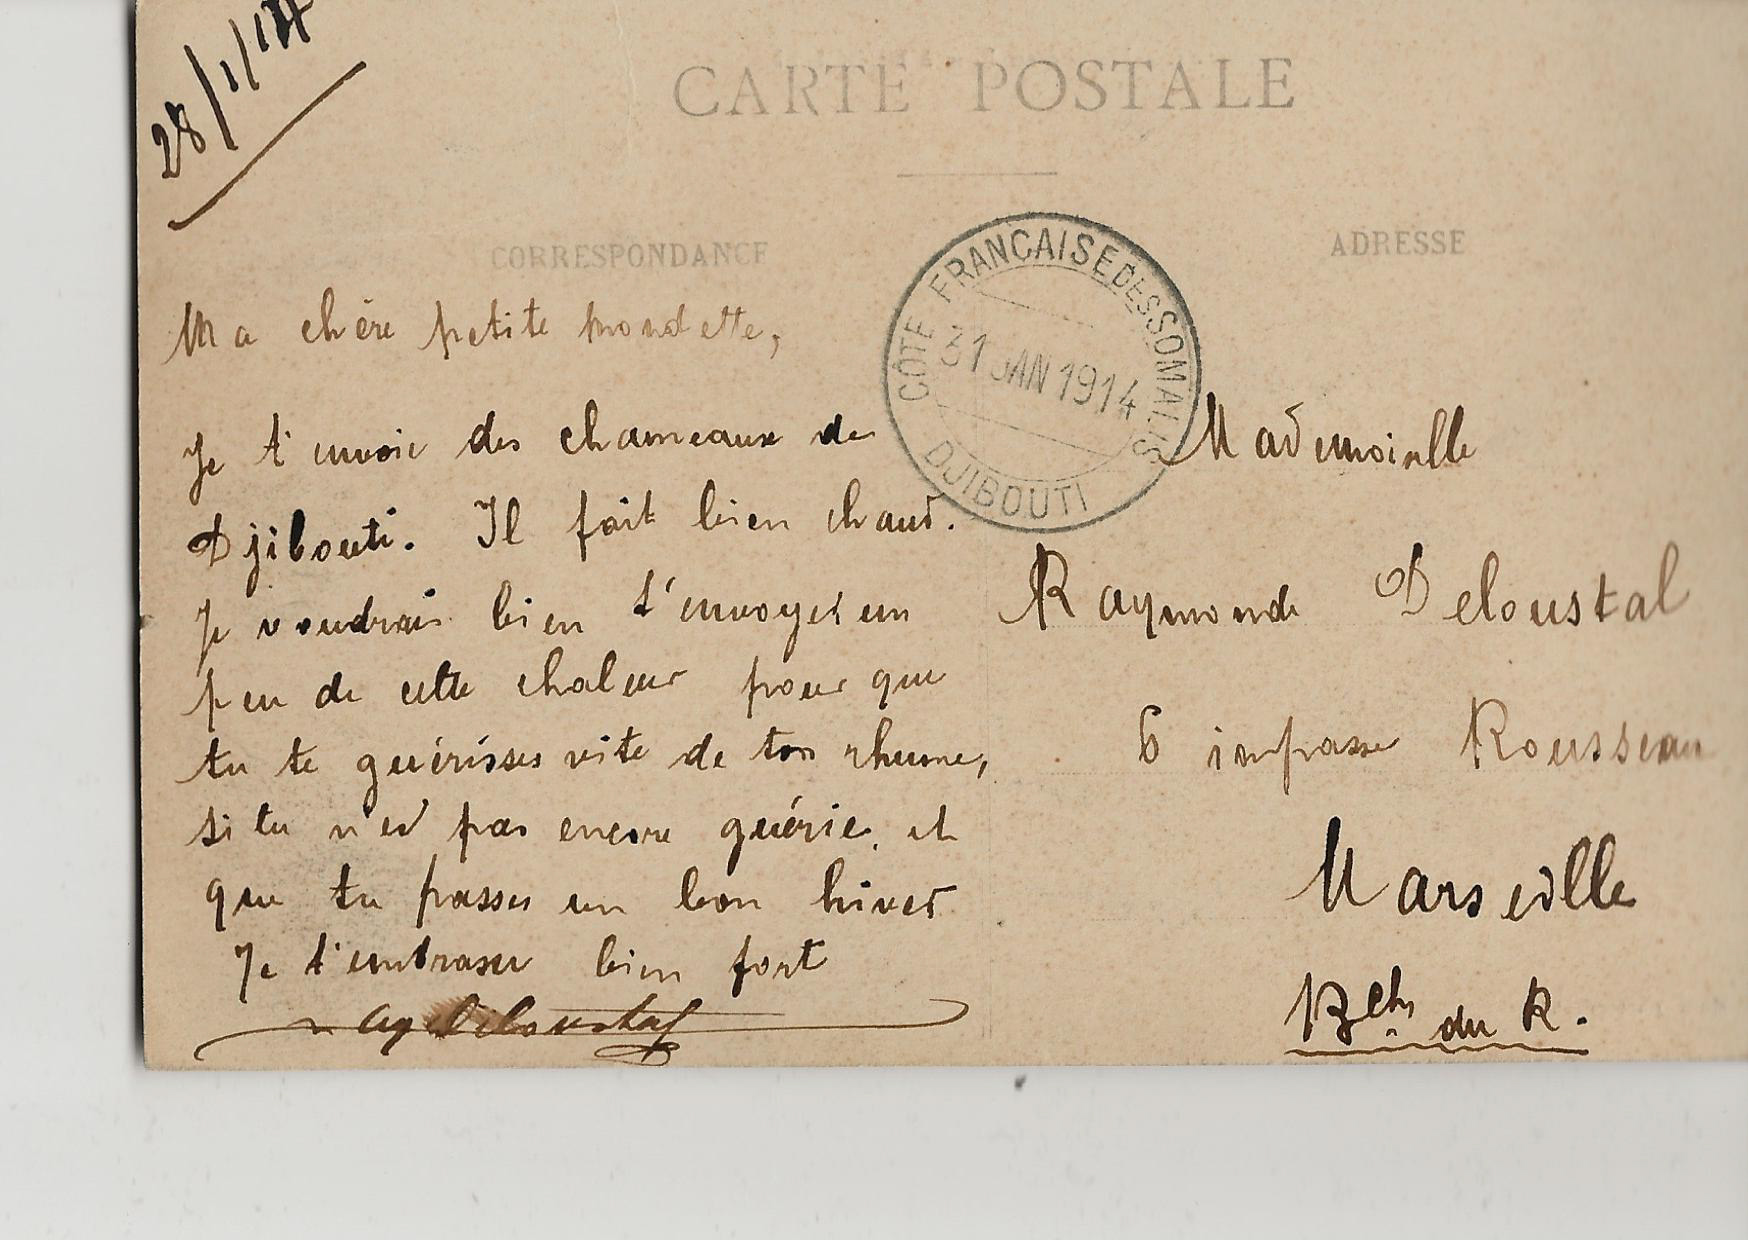 28/1/14
CARTE POSTALE
CORRESPONDANCE
ADRESSE
CÔTE FRANÇAISE DES SOMALIS
31 JAN 1914
DJIBOUTI
Ma chère petite mondette,
Je t'envoie des chameaux de
Djibouti. Il fait bien chaud.
Je voudrais bien t'envoyer un
peu de cette chaleur pour que
tu te guérisses vite de ton rhume,
si tu n'es pas encore guérie, et
que tu passes un bon hiver
Je t'embrasse bien fort
Deloustal
Mademoiselle
Raymonde Deloustal
6 impasse Rousseau
Marseille
Bches du R.